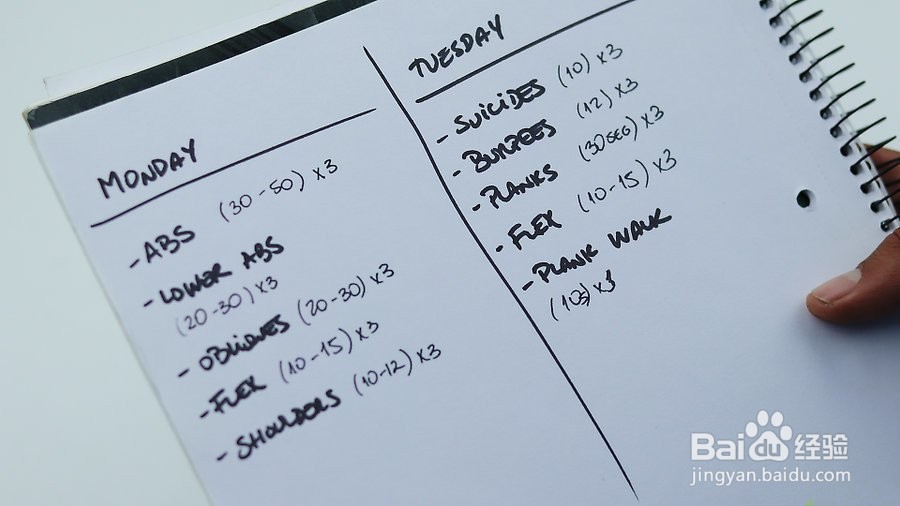 MONDAY
- ABS (30-50) x3
- LOWER ABS
(20-30) x3
- OBLIQUES (20-30) x3
- FLEX (10-15) x3
- SHOULDERS (10-12) x3
TUESDAY
- SUICIDES (10) x3
- BURPEES (12) x3
- PLANKS (30SEG) x3
- FLEX (10-15) x3
- PLANK WALK
x3
Baidu经验
jingyan.baidu.com